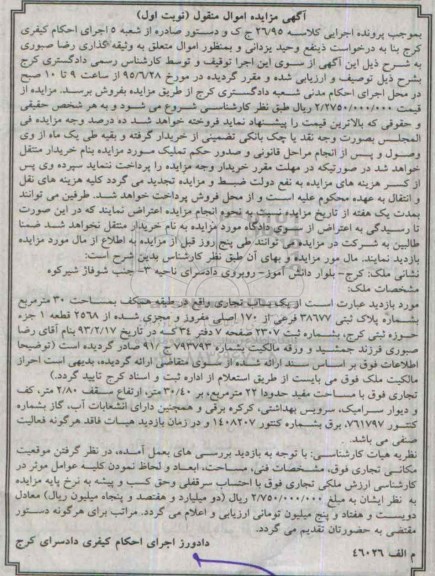 آگهی مزایده اموال منقول (نوبت اول)
بموجب پرونده اجرایی کلاسه ۲۶/۹۵ ج ک و دستور صادره از شعبه ۵ اجرای احکام کیفری
کرج بنا به درخواست ذینفع وحید یزدانی و بمنظور اموال متعلق به وثیقه گذاری رضا صبوری
به شرح ذیل این آگهی از سوی این اجرا توقیف و توسط کارشناس رسمی دادگستری کرج
بشرح ذیل توصیف و ارزیابی شده و مقرر گردیده در مورخ ۹۵/۶/۲۸ از ساعت ۹ تا ۱۰ صبح
در محل اجرای احکام مدنی شعبه دادگستری کرج از طریق مزایده بفروش برسد. مزایده از
قیمت ۲/۷۵۰/۰۰۰/۰۰۰ ریال طبق نظر کارشناسی شروع می شود و به هر شخص حقیقی
و حقوقی که بالاترین قیمت را پیشنهاد نماید فروخته خواهد شد ده درصد وجه مزایده فی
المجلس بصورت وجه نقد یا چک بانکی تضمینی از خریدار گرفته و بقیه طی یک ماه از وی
وصول و پس از انجام مراحل قانونی و صدور حکم تملیک مورد مزایده بنام خریدار منتقل
خواهد شد در صورتیکه در مهلت مقرر خریدار وجه مزایده را پرداخت ننماید سپرده وی پس
از کسر هزینه های مزایده به نفع دولت ضبط و مزایده تجدید می گردد کلیه هزینه های نقل
و انتقال به عهده محکوم علیه است و از محل فروش پرداخت خواهد شد. طرفین می توانند
بمدت یک هفته از تاریخ مزایده نسبت به نحوه انجام مزایده اعتراض نمایند که در این صورت
تا رسیدگی به اعتراض از سوی دادگاه مورد مزایده به نام خریدار منتقل نخواهد شد ضمنا
طالبین به شرکت در مزایده می توانند طی پنج روز قبل از مزایده به اطلاع از مال مورد مزایده
بازدید نمایند. مال مور مزایده و بهای آن طبق نظر کارشناس بدین شرح است:
نشانی ملک: کرج- بلوار دانش آموز- روبروی دادسرای ناحیه ۳- جنب شوفاژ شیرکوه
مشخصات ملک:
مورد بازدید عبارت است از یک باب تجاری واقع در طبقه همکف بمساحت ۳۰ مترمربع
بشماره پلاک ثبتی ۳۸۶۷۷ فرعی از ۱۷۰ اصلی مفروز و مجزی شده از ۲۵۶۸ قطعه ۱ جزء
حوزه ثبتی کرج، بشماره ثبت ۲۳۰۷ صفحه ۷ دفتر ۳۴ که در تاریخ ۹۳/۲/۱۷ بنام آقای رضا
صبوری فرزند جمشید و ورقه مالکیت بشماره ۷۹۳۷۹۳ ج ۹۱ صادر گردیده است (توضیحا
اطلاعات فوق بر اساس سند ارائه شده از سوی متقاضی ارائه گردیده، بدیهی است احراز
مالکیت ملک فوق می بایست از طریق استعلام از اداره ثبت و اسناد کرج تایید گردد.)
تجاری فوق با مساحت مفید حدودا ۲۲ مترمربع، بر ۳۰/۴۰ متر، ارتفاع سقف ۲/۸۰ متر، کف
و دیوار سرامیک، سرویس بهداشتی، کرکره برقی و همچنین دارای انشعابات آب، گاز بشماره
کنتور ۷۶۱۷۹۷، برق بشماره کنتور ۱۴۰۸۲۰۷ و در زمان بازدید هیات فاقد هرگونه فعالیت
صنفی می باشد .
نظریه هیات کارشناسی: با توجه به بازدید بررسی های بعمل آمده، در نظر گرفتن موقعیت
مکانی تجاری فوق، مشخصات فنی، مساحت، ابعاد و لحاظ نمودن کلیه عوامل موثر در
کارشناسی ارزش ملکی تجاری فوق با احتساب سرقفلی وحق کسب و پیشه به نرخ پایه مزایده
به نظر ایشان به مبلغ ۲/۷۵۰/۰۰۰/۰۰۰ ریال (دو میلیارد و هفتصد و پنجاه میلیون ریال) معادل
دویست و هفتاد و پنج میلیون تومانی ارزیابی و اعلام می گردد. مراتب برای هرگونه دستور
مقتضی به حضورتان تقدیم می گردد.
دادورز اجرای احکام کیفری دادسرای کرج
م الف ۴۶۰۲۶